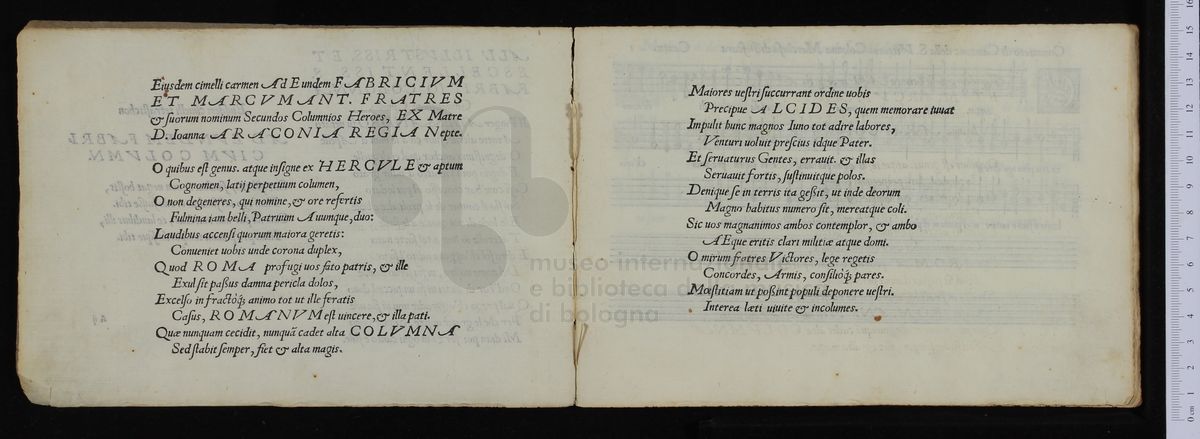 Eiusdem cimelli carmen Ad Eundem FABRICIVM
ET MARCVM ANT. FRATRES
& suorum nominum Secundos Columnios Heroes, EX Matre
D. Ioanna ARACONIA REGIA Nepte.
O quibus est genus. atque insigne ex HERCVLE & aptum
Cognomen, latij perpetuum columen,
O non degeneres, qui nomine, & ore refertis
Fulmina iam belli, Patruum Auumque, duo:
Laudibus accensi quorum maiora geretis:
Conueniet uobis unde corona duplex,
Quod ROMA profugi uos fito patris, & ille
Exul sit passus damna pericla dolos,
Excelso infractoq; animo tot ut ille feratis
Casus, ROMANVM est uincere, & illa pati.
Quæ nunquam cecidit, nunquã cadet alta COLVMNA
Sed stabit semper, fiet & alta magis.
Maiores uestri succurrant ordine uobis
Precipue ALCIDES, quem memorare iuuat
Impulit hunc magnos Iuno tot adire labores,
Venturi uoluit prescius idque Pater.
Et seruaturus Gentes, errauit. & illas
Seruauit fortis, sustinuitque polos.
Denique se in terris ita gessit, ut inde deorum
Magno habitus numero sit, mereatque coli.
Sic uos magnanimos ambos contemplor, & ambo
AEque eritis clari militiæ atque domi.
O mirum fratres Victores, lege regetis
Concordes, Armis, consilioq; pares.
Mœstitiam ut possint populi deponere uestri.
Interea læti uiuite & incolumes.
museo internazionale
e biblioteca della
di bologna